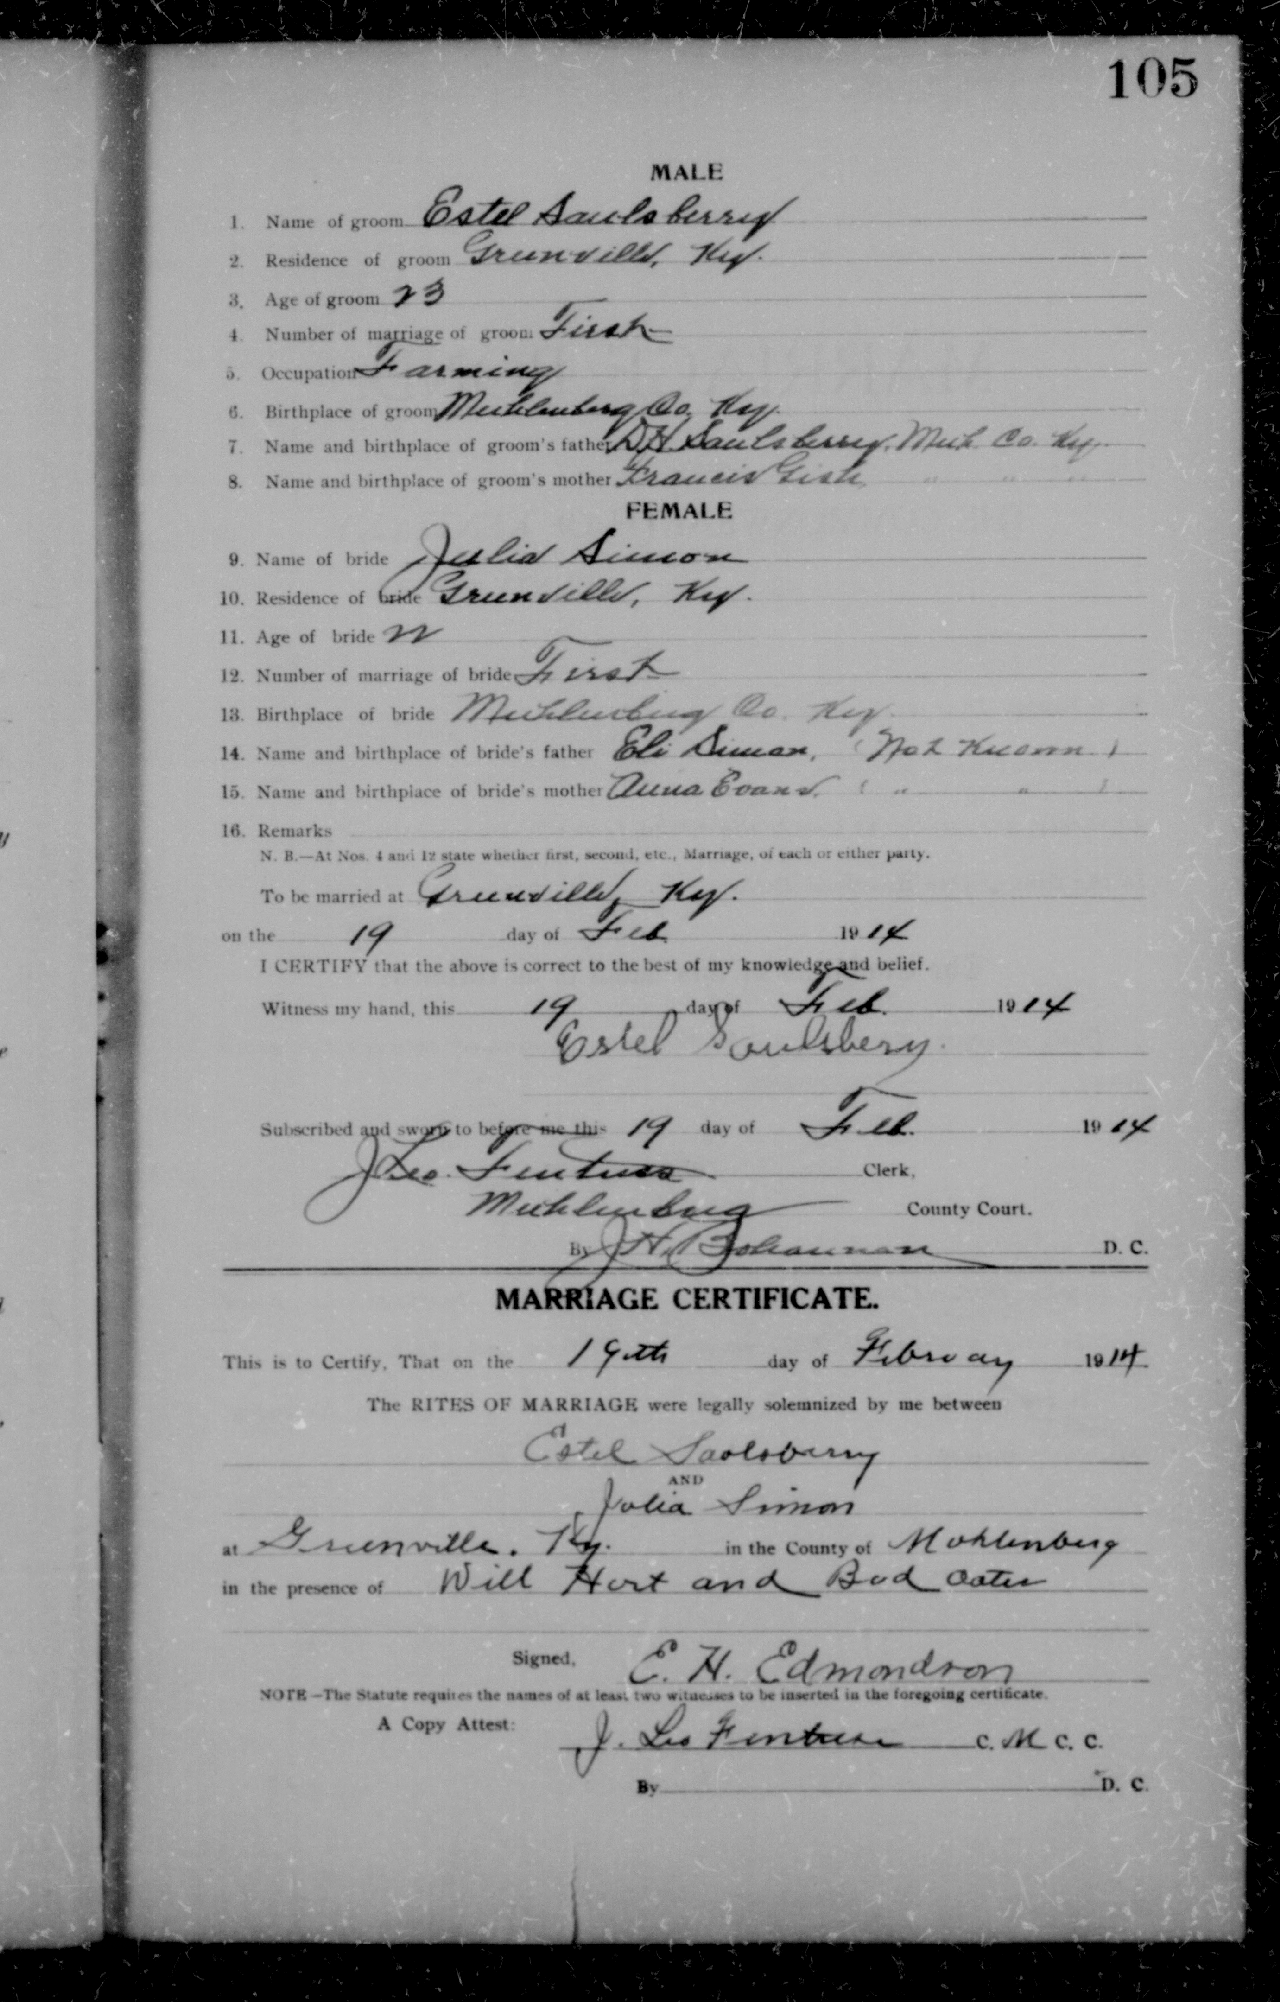 105
MALE
1. Name of groom Estel Saulsberry
2. Residence of groom Greenville, Ky.
3. Age of groom 23
4. Number of marriage of groom First
5. Occupation Farming
6. Birthplace of groom Muhlenberg Co. Ky.
7. Name and birthplace of groom's father D.H. Saulsberry, Muh. Co. Ky.
8. Name and birthplace of groom's mother Francis Gish, " " "
FEMALE
9. Name of bride Julia Simon
10. Residence of bride Greenville, Ky.
11. Age of bride 22
12. Number of marriage of bride First
13. Birthplace of bride Muhlenberg Co. Ky.
14. Name and birthplace of bride's father Eli Simon, (Not Known)
15. Name and birthplace of bride's mother Anna Evans. ( " " )
16. Remarks
N. B.—At Nos. 4 and 12 state whether first, second, etc., Marriage, of each or either party.
To be married at Greenville, Ky.
on the 19 day of Feb 1914
I CERTIFY that the above is correct to the best of my knowledge and belief.
Witness my hand, this 19 day of Feb. 1914
Estel Saulsbery.
Subscribed and sworn to before me this 19 day of Feb. 1914
J Leo. Fentress Clerk,
Muhlenberg County Court.
By J H. Bohannan D. C.
MARRIAGE CERTIFICATE.
This is to Certify, That on the 19th day of Februay 1914
The RITES OF MARRIAGE were legally solemnized by me between
Estel Saolsberry
AND
Julia Simon
at Greenville. Ky. in the County of Mohlenberg
in the presence of Will Hort and Bud Oates
Signed, E. H. Edmondson
NOTE—The Statute requires the names of at least two witnesses to be inserted in the foregoing certificate.
A Copy Attest:
J. Leo Fentress C. M C. C.
By D. C.